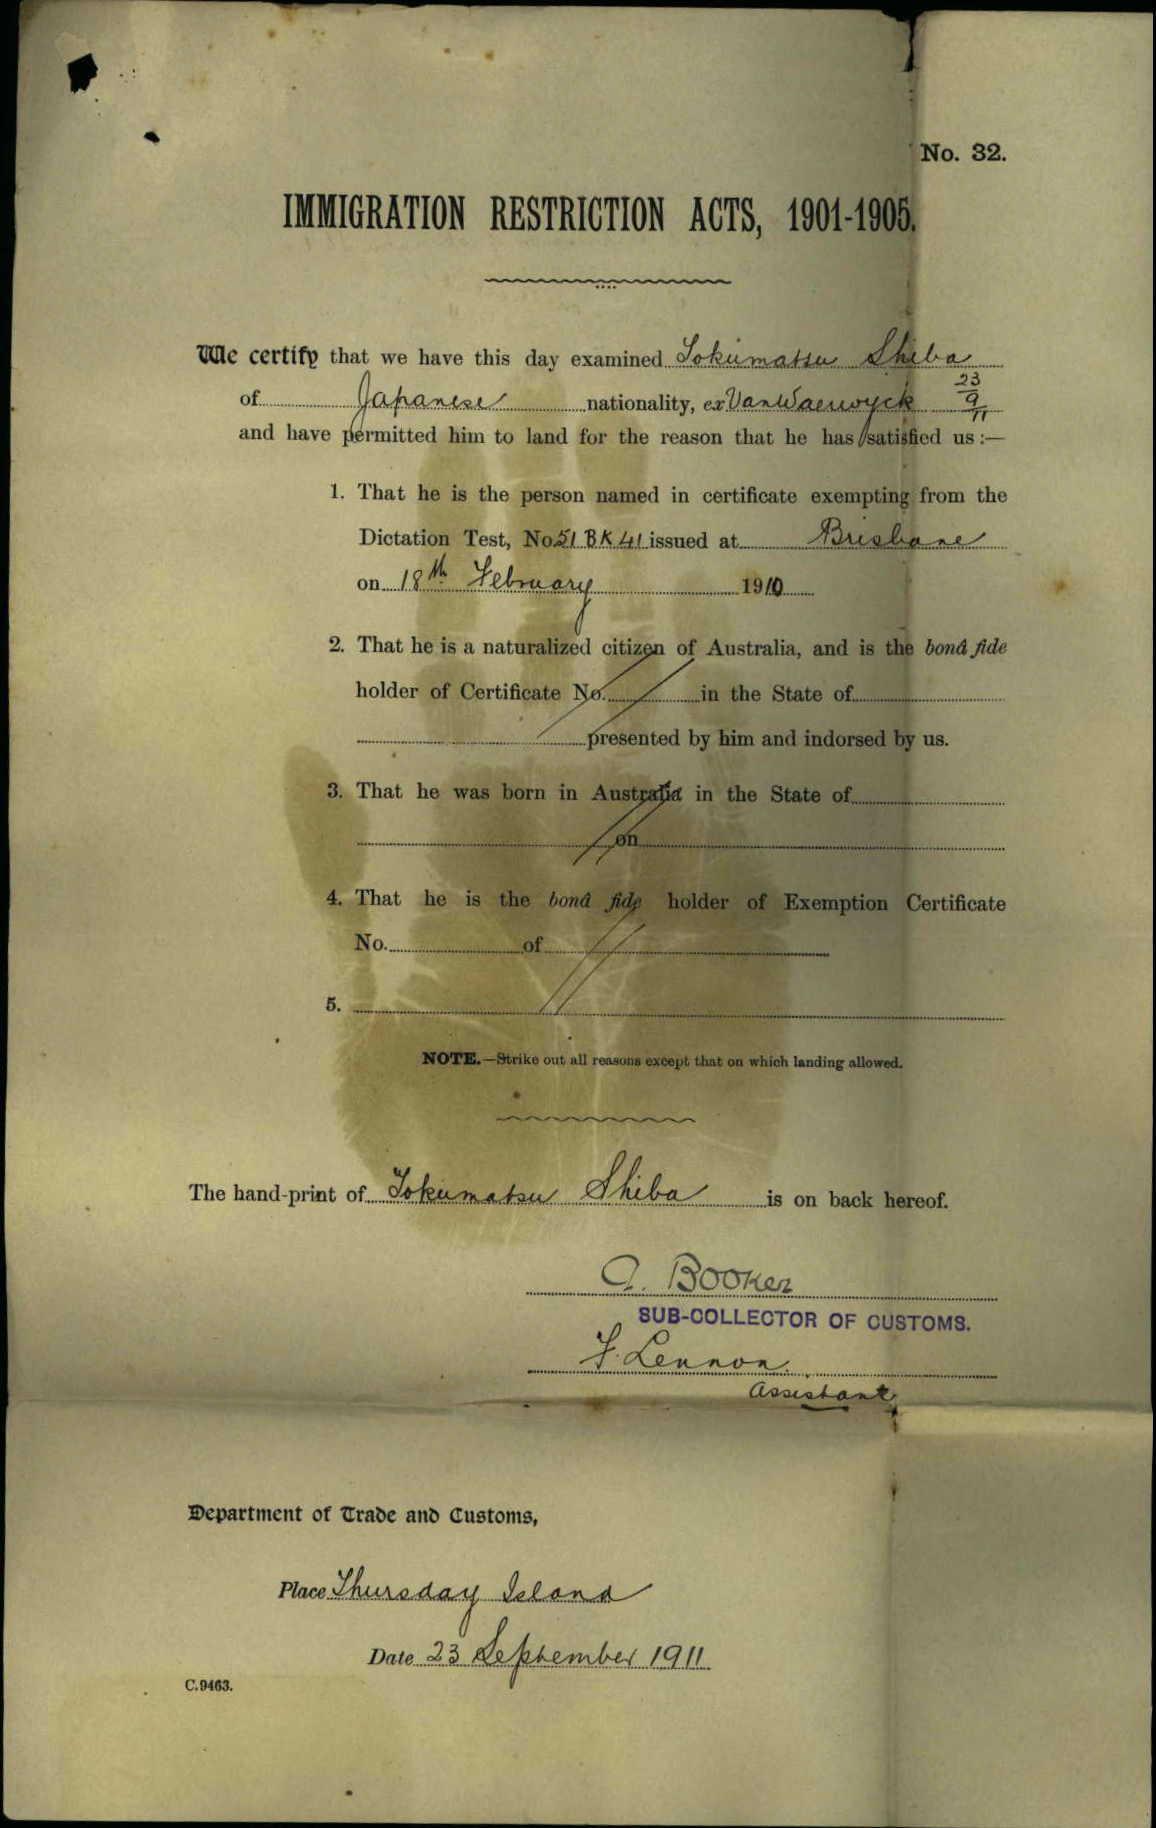 No. 32.
IMMIGRATION RESTRICTION ACTS, 1901-1905.
We certify that we have this day examined Tokumatsu Shiba
of Japanese nationality, ex Van Waerwyck 23/9/11
and have permitted him to land for the reason that he has satisfied us :—
1. That he is the person named in certificate exempting from the
Dictation Test, No. 51 BK 41 issued at Brisbane
on 18th February 1910
2. That he is a naturalized citizen of Australia, and is the bonâ fide
holder of Certificate No. in the State of
presented by him and indorsed by us.
3. That he was born in Australia in the State of
on
4. That he is the bonâ fide holder of Exemption Certificate
No. of
5.
NOTE.—Strike out all reasons except that on which landing allowed.
The hand-print of Tokumatsu Shiba is on back hereof.
A. Booker
SUB-COLLECTOR OF CUSTOMS.
F. Lennon.
Assistant
Department of Trade and Customs,
Place Thursday Island
Date 23 September 1911
C.9463.